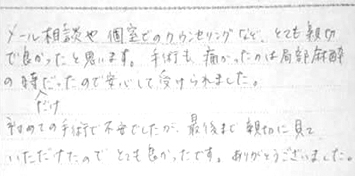 メール相談や 個室でのカウンセリングなど、とても親切
で良かったと思います。手術も 痛かったのは局部麻酔
の時だけだったので安心して受けられました。
初めての手術で不安でしたが、最後まで親切に見て
いただけたので とても良かったです。ありがとうございました。